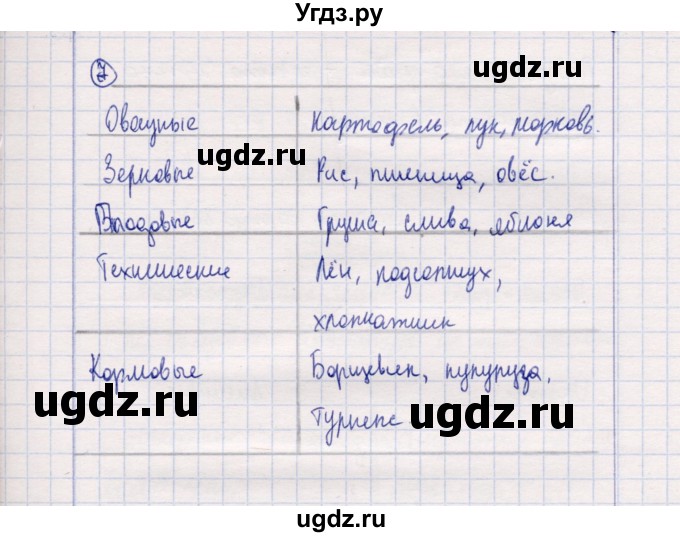 Угдз.ру
7
ugdz.ru
Овощные Картофель, лук, морковь.
ugdz.ru
Зерновые Рис, пшеница, овёс.
Плодовые Груша, слива, яблоня
Технические Лён, подсолнух,
хлопчатник
Кормовые Борщевик, кукуруза,
ugdz.ru ugdz.ru
Турнепс
ugdz.ru